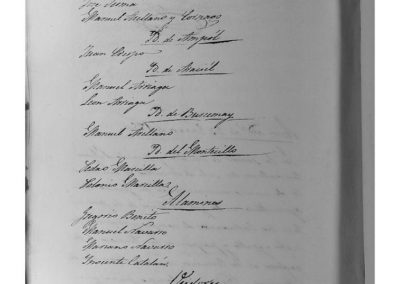 Manuel Arellano y Corsinos
D. de Ampól
Juan Crespo
D. de Aravil
Manuel Arriaga
Leon Arriaga
D. de Buscemay
Manuel Arellano
D. del Montecillo
Pedro Marcilla
Antonio Marcilla
Alamines
Gregorio Benito
Manuel Navarro
Mariano Navarro
Inocente Catalán